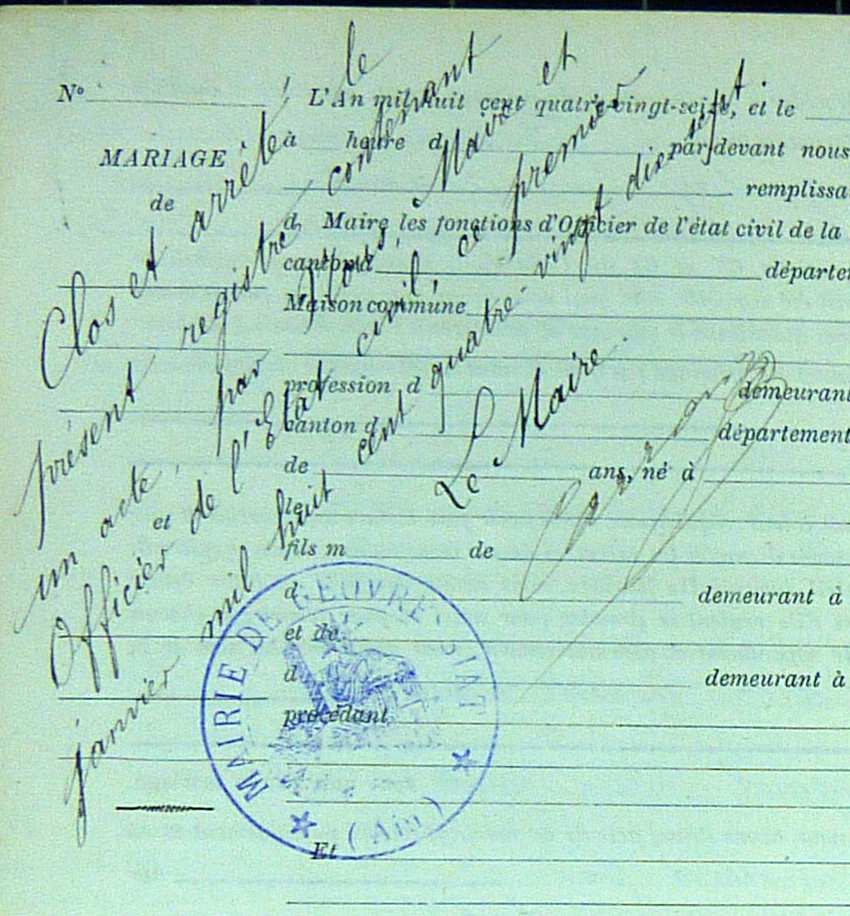 N°
MARIAGE
de
et
L'An mil huit cent quatre-vingt-seize, et le
à heure d par devant nous
remplissa
d Maire les fonctions d'Officier de l'état civil de la
canton d départe
Maison commune
profession d demeurant
canton d département
de ans, né à
le
fils m de
d demeurant à
et de
d demeurant à
procédant
Et
Clos et arrêté le
présent registre contenant
un acte, par Nous, Maire et
Officier de l'Etat civil, ce premier
janvier mil huit cent quatre-vingt dix sept.
Le Maire.
MAIRIE DE GEOVREISSIAT
(Ain)